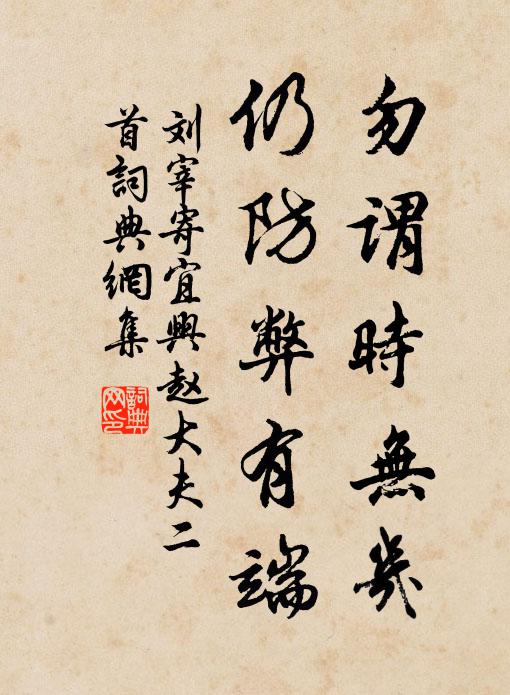 勿謂時無幾
仍防弊有端
刘宰寄宜興赵大夫二
首詞典網集
詞典
网印